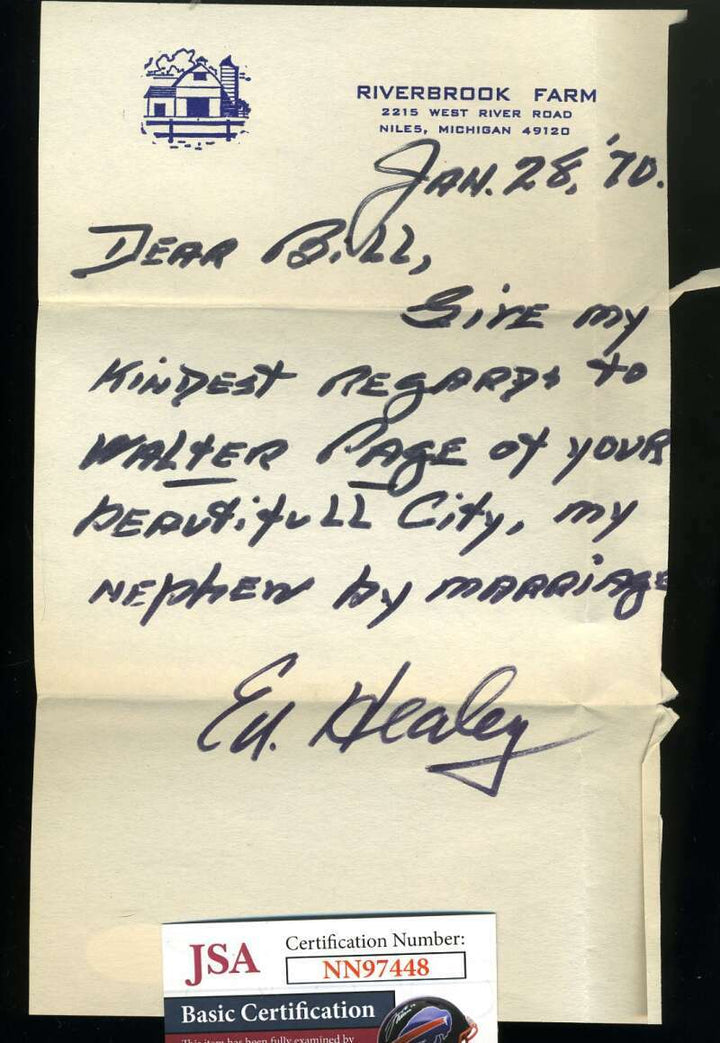 RIVERBROOK FARM
2215 WEST RIVER ROAD
NILES, MICHIGAN 49120
JAN. 28, '70.
DEAR Bill,
Give my
KINDEST REGARDS to
WALTER PAGE of YOUR
beautifull City, my
NEphew by MARRIAGE
Ed. Healey
JSA
Certification Number:
NN97448
Basic Certification
This item has been fully examined by